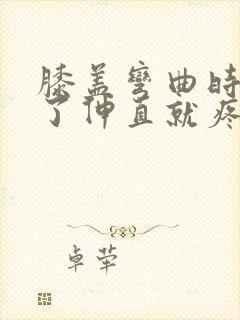 膝盖弯曲时
了伸直就疼
卓荦